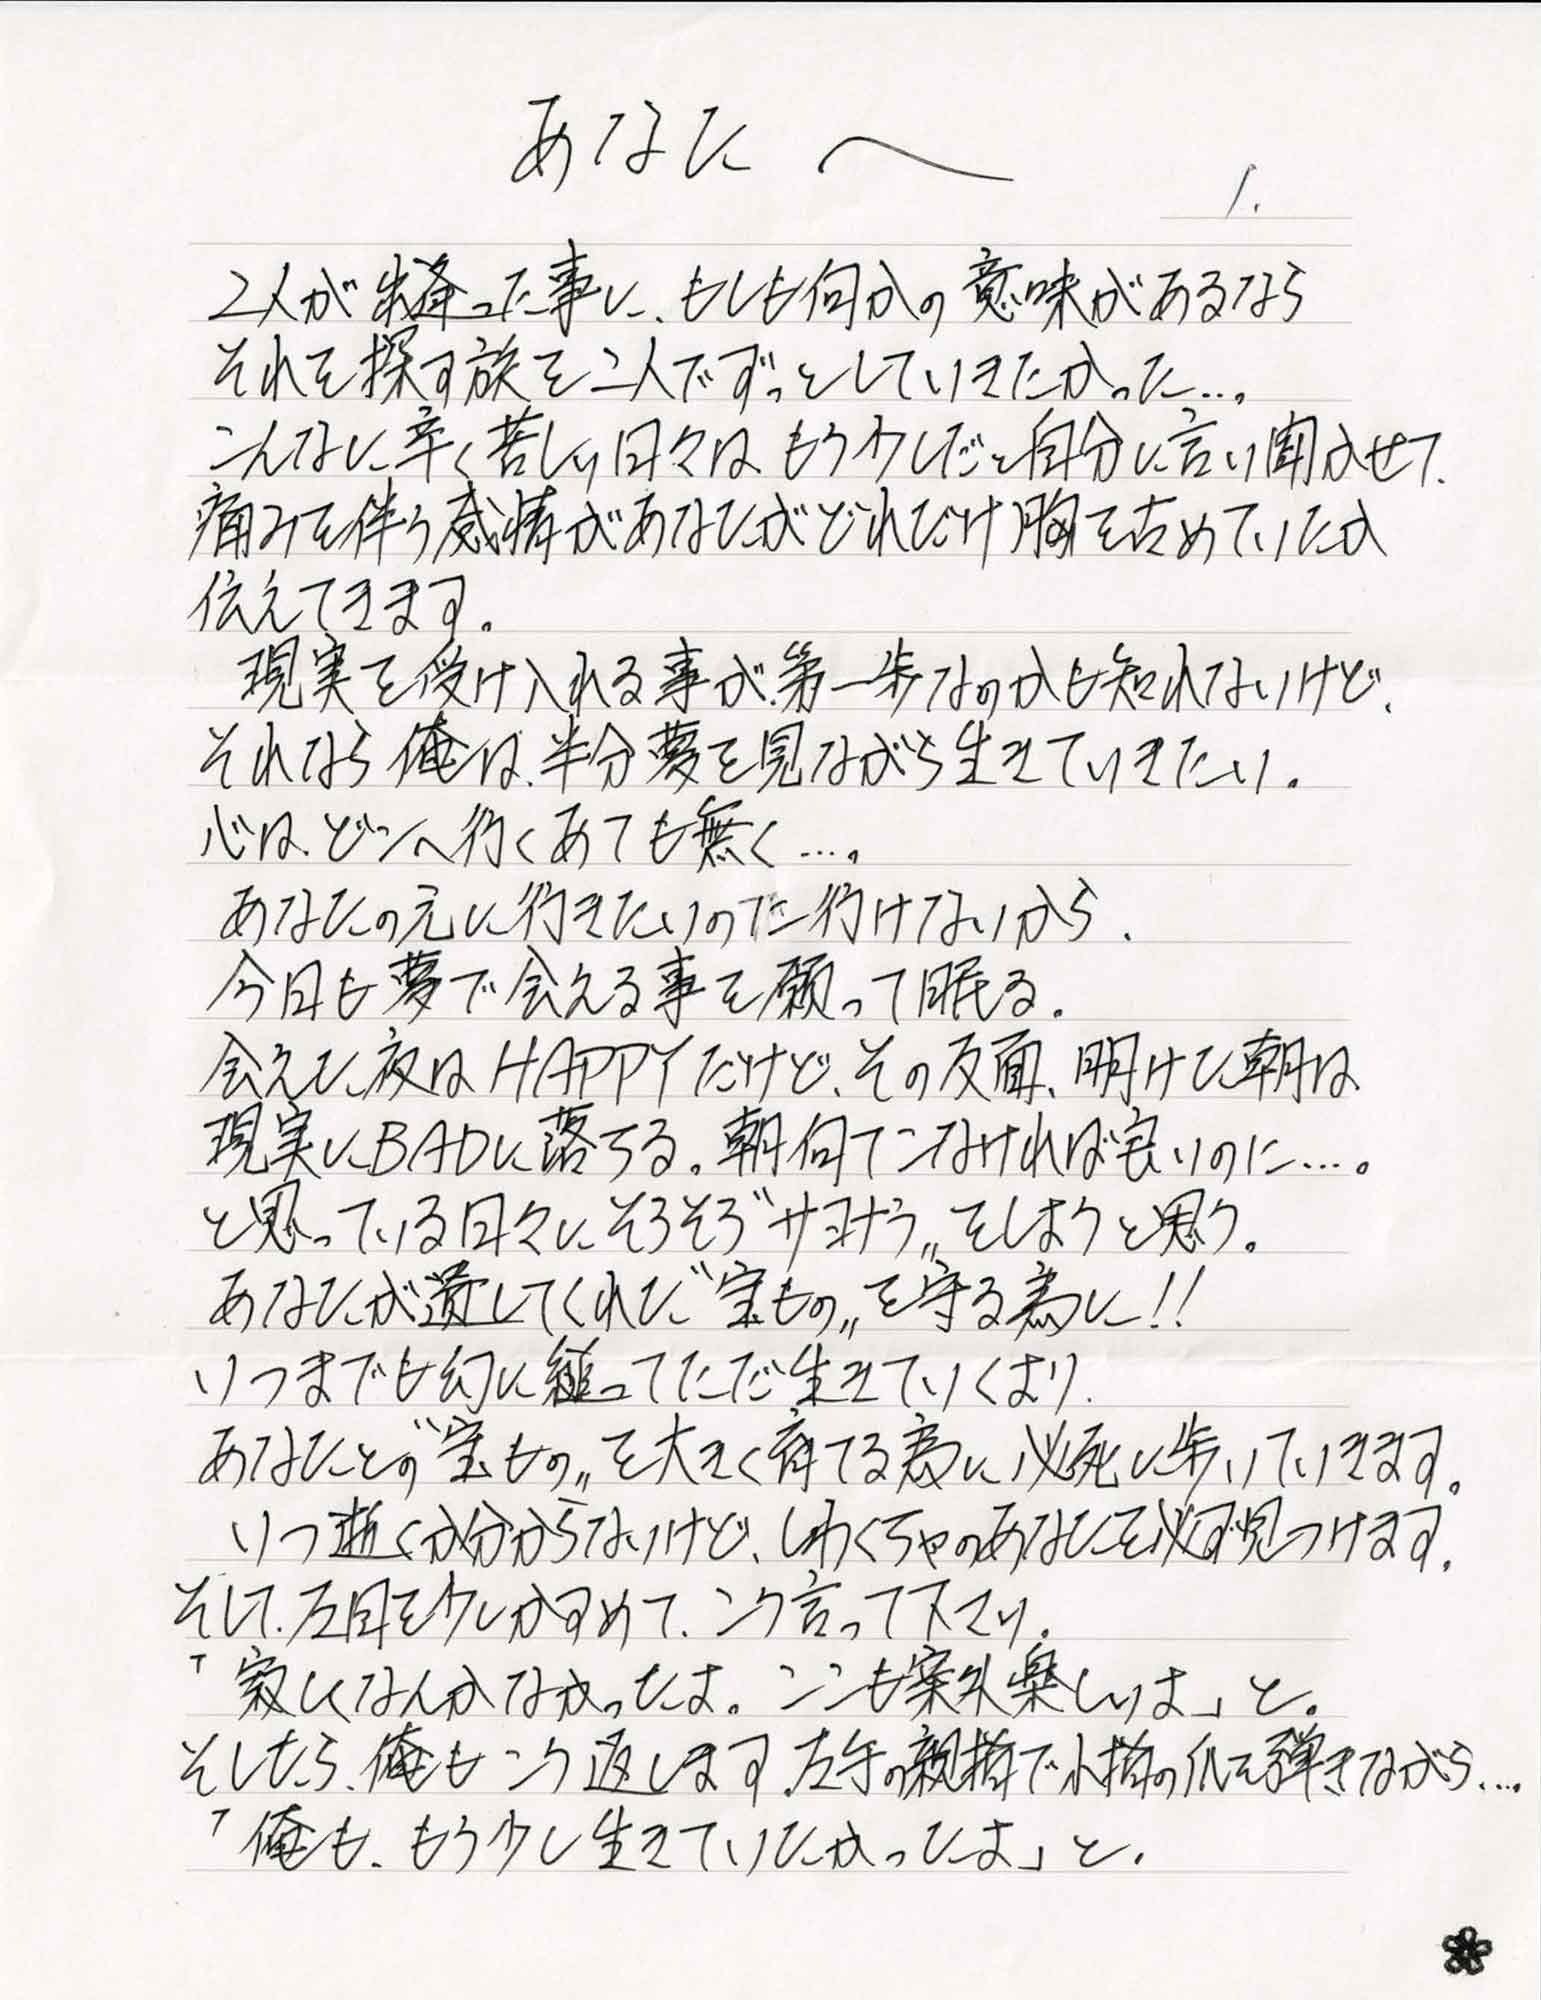 あなたへ
1.
2人が出逢った事に、もしも何かの意味があるなら
それを探す旅を二人でずっとしていきたかった…。
こんなに辛く苦しい日々は、もう少しだと自分に言い聞かせて、
痛みを伴う感情があなたがどれだけ胸を占めていたか
伝えてきます。
現実を受け入れる事が、第一歩なのかも知れないけど、
それなら俺は、半分夢を見ながら生きていきたい。
心は、どこへ行くあても無く…。
あなたの元に行きたいのに行けないから、
今日も夢で会える事を願って眠る。
会えた夜はHAPPYだけど、その反面、明けた朝は
現実にBADに落ちる。朝何てこなければ良いのに…。
と思っている日々にそろそろ"サヨナラ"をしようと思う。
あなたが遺してくれた"宝もの"を守る為に!!
いつまでも幻に縋ってただ生きていくより、
あなたとの"宝もの"を大きく育てる為に必死に歩いていきます。
いつ逝くか分からないけど、しわくちゃのあなたを必ず見つけます。
そして、左目を少しかすめて、こう言って下さい。
「寂しくなんかなかったよ。ここも案外楽しいよ」と。
そしたら、俺もこう返します。左手の親指で小指の爪を弾きながら…。
「俺も、もう少し生きていたかったよ」と。